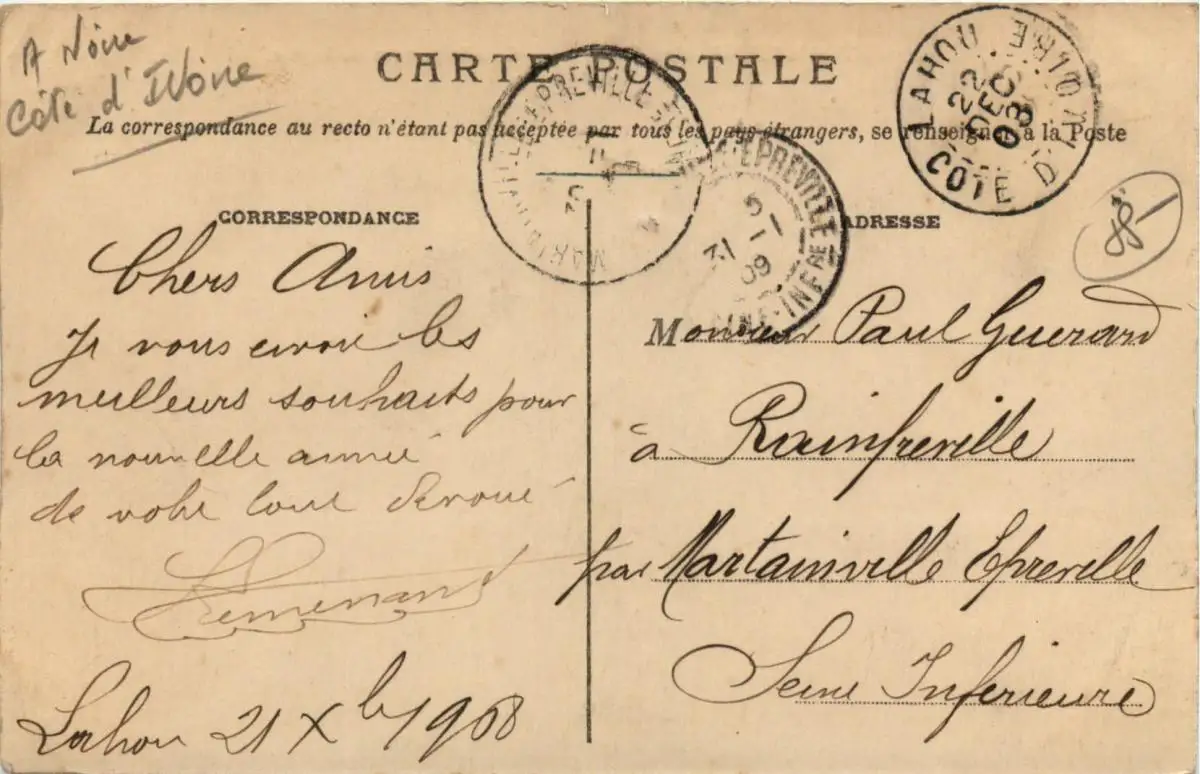 A Noire
Côte d'Ivoire
CARTE POSTALE
La correspondance au recto n'étant pas acceptée par tous les pays étrangers, se renseigner à la Poste
LAHOU
22
DEC
08
COTE D'IVOIRE
MARTAINVILLE-EPREVILLE
EPREVILLE
5-1
09
SEINE-INFRE
CORRESPONDANCE
ADRESSE
88-
Chers Amis
Je vous envoie les
meilleurs souhaits pour
la nouvelle année
de votre tout dévoué
Lahou 21 Xbr 1908
Monsieur Paul Guerard
à Rainfreville
par Martainville Epreville
Seine Inferieure